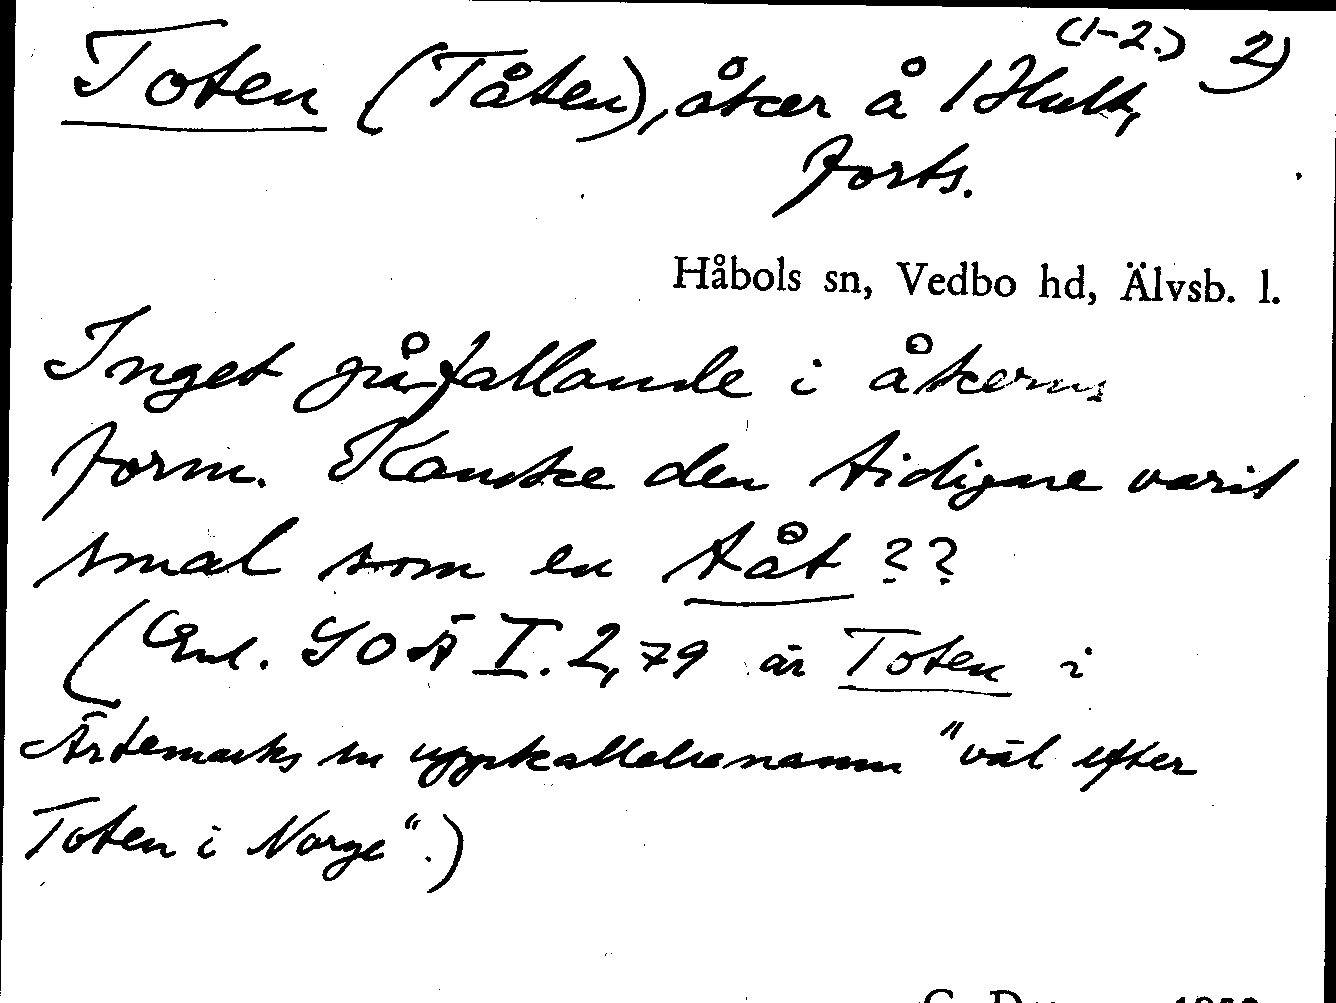 (1-2.) 2)
Toten (Tåten), åker å 1 Hult,
forts.
Håbols sn, Vedbo hd, Älvsb. l.
Inget påfallande i åkerns
form. Kanske den tidigare varit
smal som en tåt ??
(Enl. SOÄ I. 2, 79 är Toten i
Ärtemarks sn uppkallelsenamn "väl efter
Toten i Norge".)